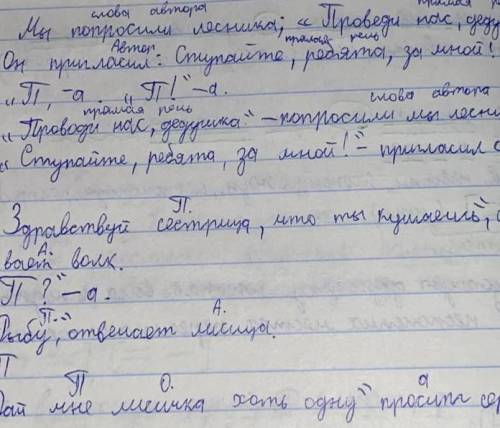 слова автора прямая
Мы попросили лесника; „Проведи нас, деду
Автор прямая речь
Он пригласил: Ступайте, ребята, за мной!
„П, -а. „П!“-а.
прямая речь слова автора
„Проводи нас, дедушка“ - попросили мы лесни
„Ступайте, ребята, за мной!“- пригласил
П.
Здравствуй сестрица, что ты кушаешь“,
А.
вает волк.
П?“-а.
П.- А.
Рыбу“, отвечает лисица.
П
П О. а
Дай мне лисичка хоть одну“ просить сер